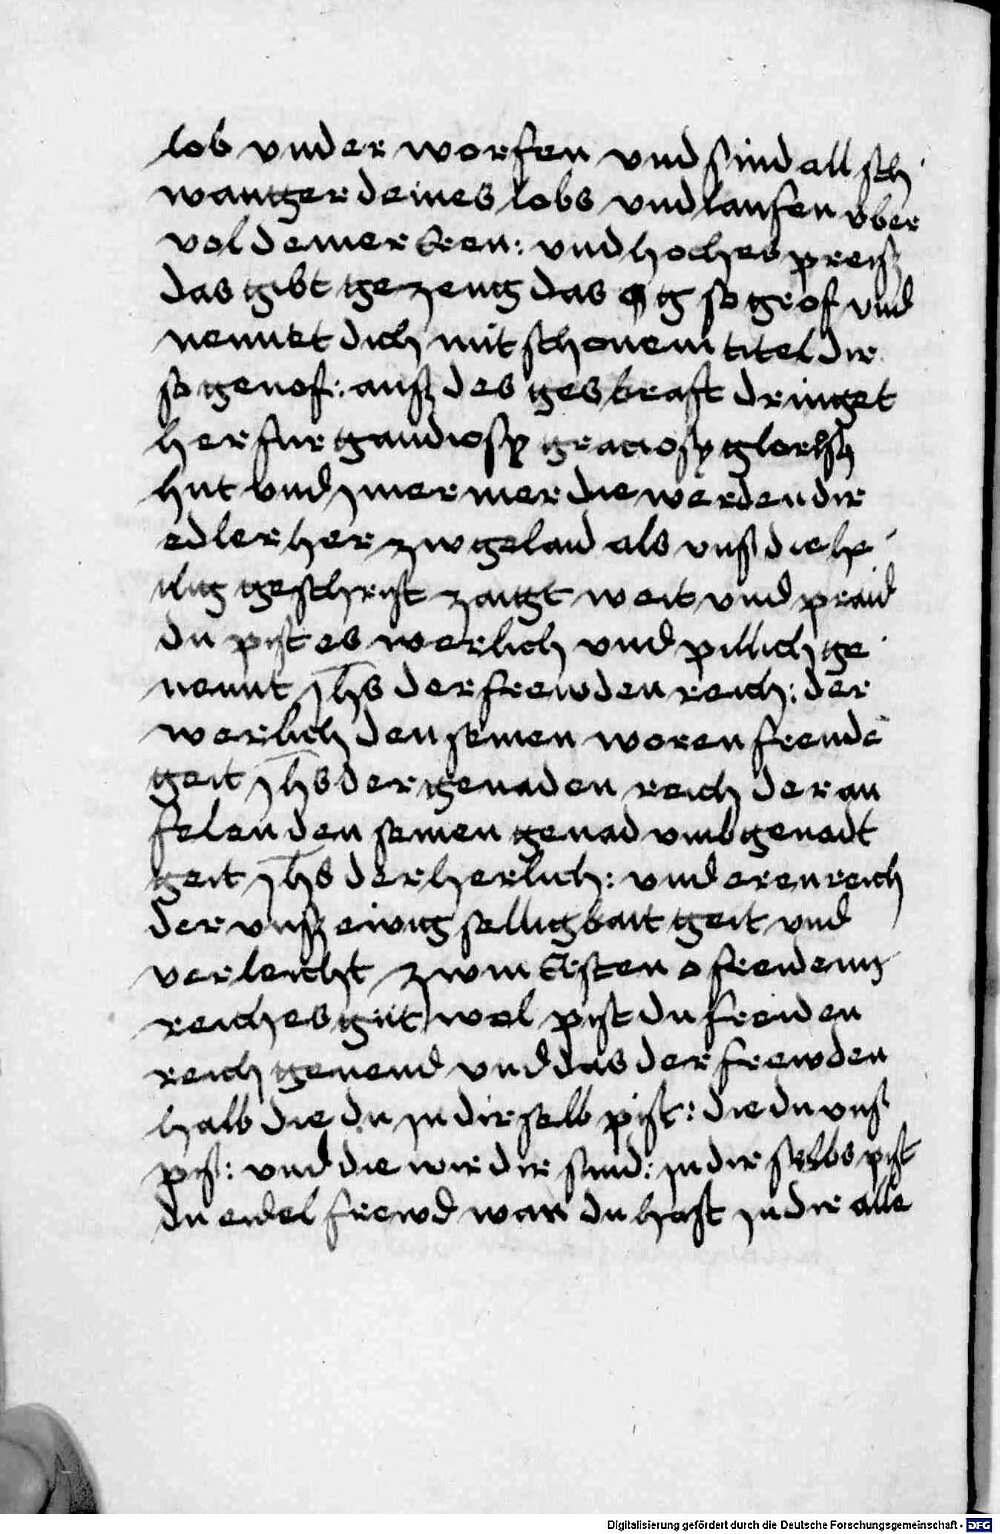 lob vnder worfen vnd sind all sch
wanger deines lobs vnd laufen vber
vol deiner eren: vnd hoches preiß
das gibt gezeug das g so grof vnd
nennet dich mit schonem titel dir
so genof: auß des ges kraft dringet
her fur gaudiosy graciosy gloriosy
hut vnd ymer mer die werden dir
edler her zw gelaid als vnß die he
ilig geschrift zaigt weit vnd praid
du pist es werlich vnd pillich ge
nennt yhs der frewden reich: der
werlich den seinen woren freude
geit yhs der genaden reich der an
felen den seinen genad vmb genadt
geit yhs der herlich: vnd eren reich
der vnß ewig selligkait geit vnd
verleicht zwm ersten o freidenn
reiches gut wol pist du freiden
reich genend vnd das der frewden
halb die du in dir selb pist: die du vnß
piß: vnd die wir dir sind: in dir selbs pist
du eidel frewd wan du hast in dir alle
Digitalisierung gefördert durch die Deutsche Forschungsgemeinschaft - DFG